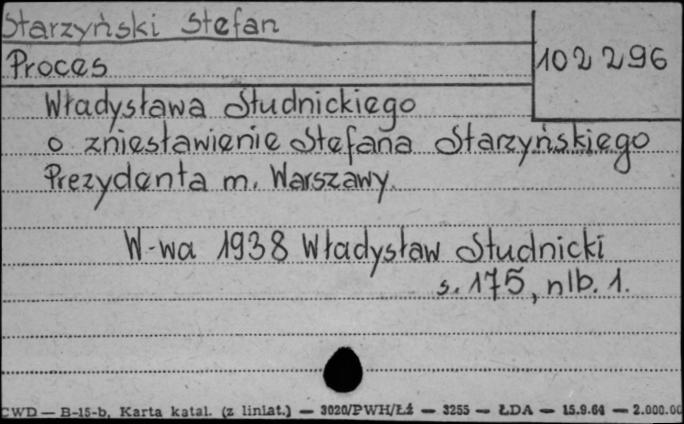 Starzyński Stefan
Proces
102 296
Władysława Studnickiego
o zniesławienie Stefana Starzyńskiego
Prezydenta m. Warszawy.
W-wa 1938 Władysław Studnicki
s. 175, nlb. 1.
CWD — B-15-b, Karta katal. (z liniat.) — 3020/PWH/Łź — 3255 — ŁDA — 15.9.64 — 2.000.00